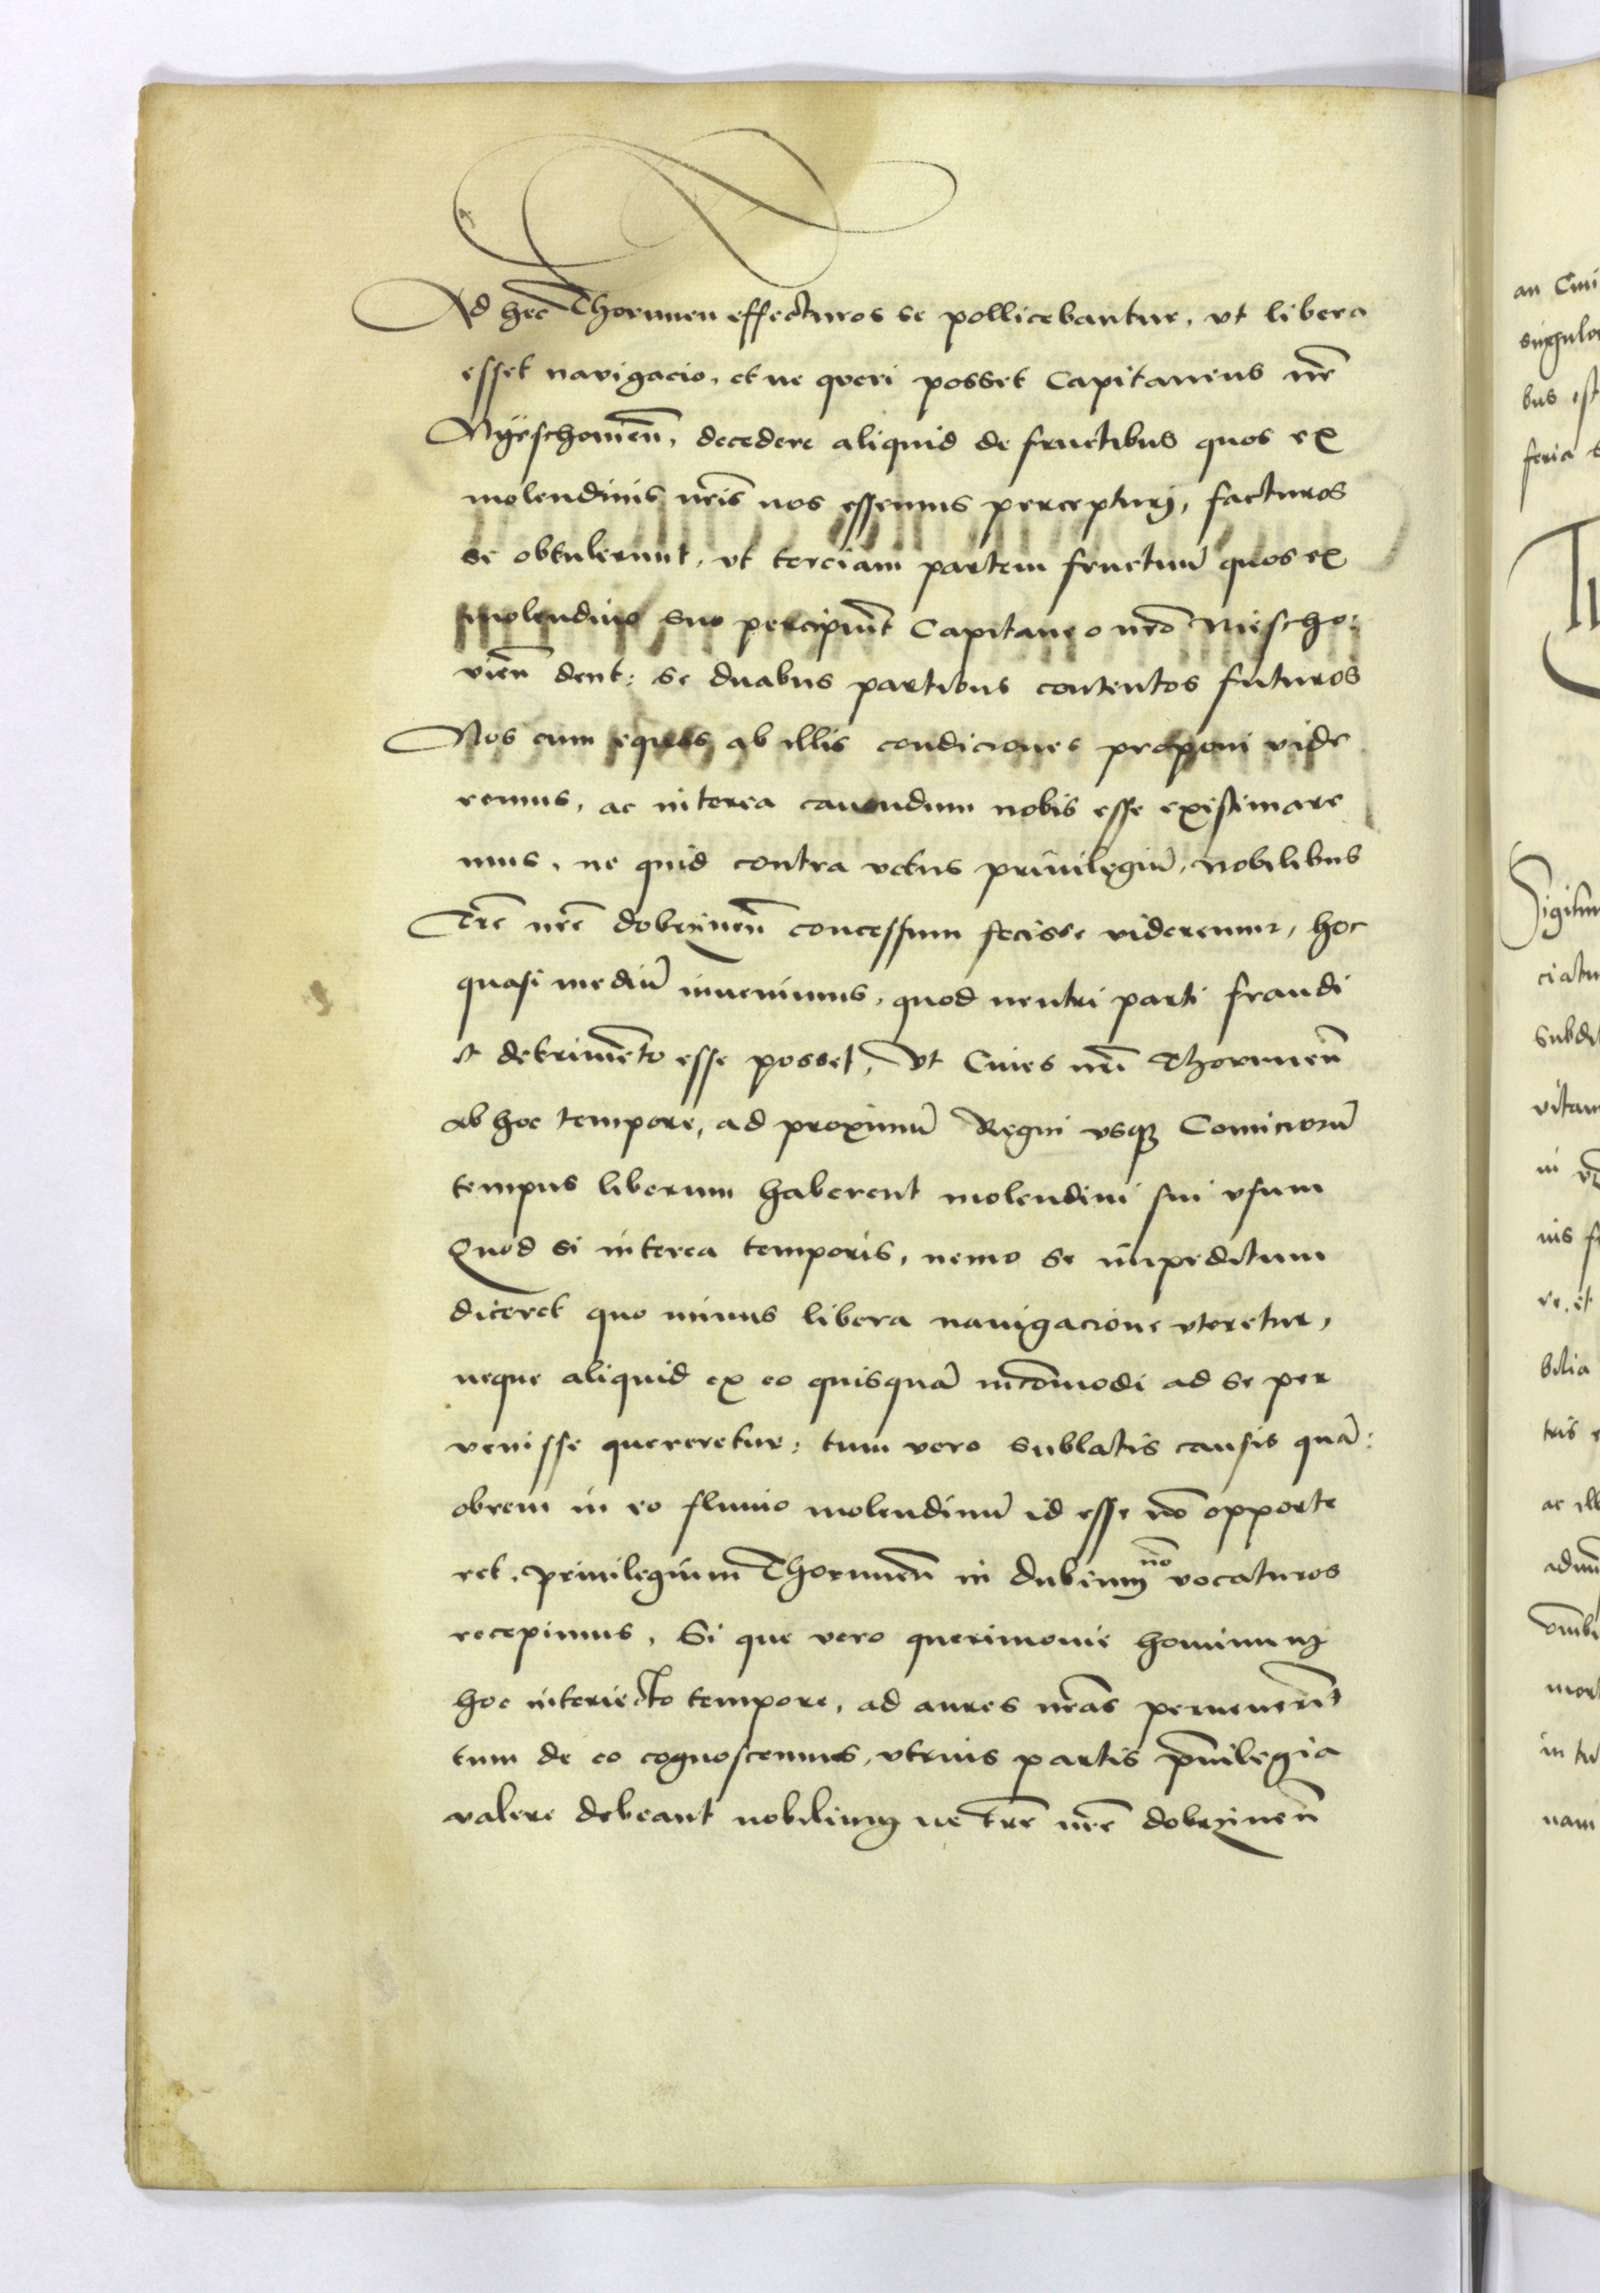 Ad hec Thorunen effecturos se pollicebantur, vt libera
esset navigacio, et ne queri posset Capitaneus nr̃
Nyeschowieñ, decedere aliquid de fructibus quos ex
molendinis nr̃is nos essemus percepturi, facturos
se obtulerunt, vt terciam partem fructuũ quos ex
molendino suo percipiũt Capitaneo nr̃o Niescho:
vieñ dent: se duabus partibus contentos futuros
Nos cum equas ab illis condiciones proponi vide
remus, ac interea cauendum nobis esse existimare
mus, ne quid contra vetus priuilegiũ, nobilibus
Tr̃e nr̃e dobrzineñ concessum fecisse videremur, hoc
quasi mediũ inuenimus, quod neutri parti fraudi
et detrimẽto esse posset, Vt Ciues nr̃i Thoruneñ
ab hoc tempore, ad proximũ Regni vsqʒ Comiciorũ
tempus liberum haberent molendini sui vsum
Quod si interea temporis, nemo se impeditum
diceret quo minus libera nauigacione vteretur,
neque aliquid ex eo quisquã incõmodi ad se per
venisse quereretur: tum vero sublatis causis quã:
obrem in eo fluuio molendinũ id esse nõ opporte
ret, priuilegium Thoruneñ in dubium nõ vocaturos
recepimus, Si que vero querimonie hominum
hoc interiecto tempore, ad aures nr̃as peruenerĩt
tum de eo cognoscemus, vtrius partis p̃uilegia
valere debeant nobilium ne Tr̃e nr̃e dobrzineñ
an Ciui
bus ist
feria s
ciatu
subdit
vitam
in
nis
bilia
tris
ac ill
in tu
nam